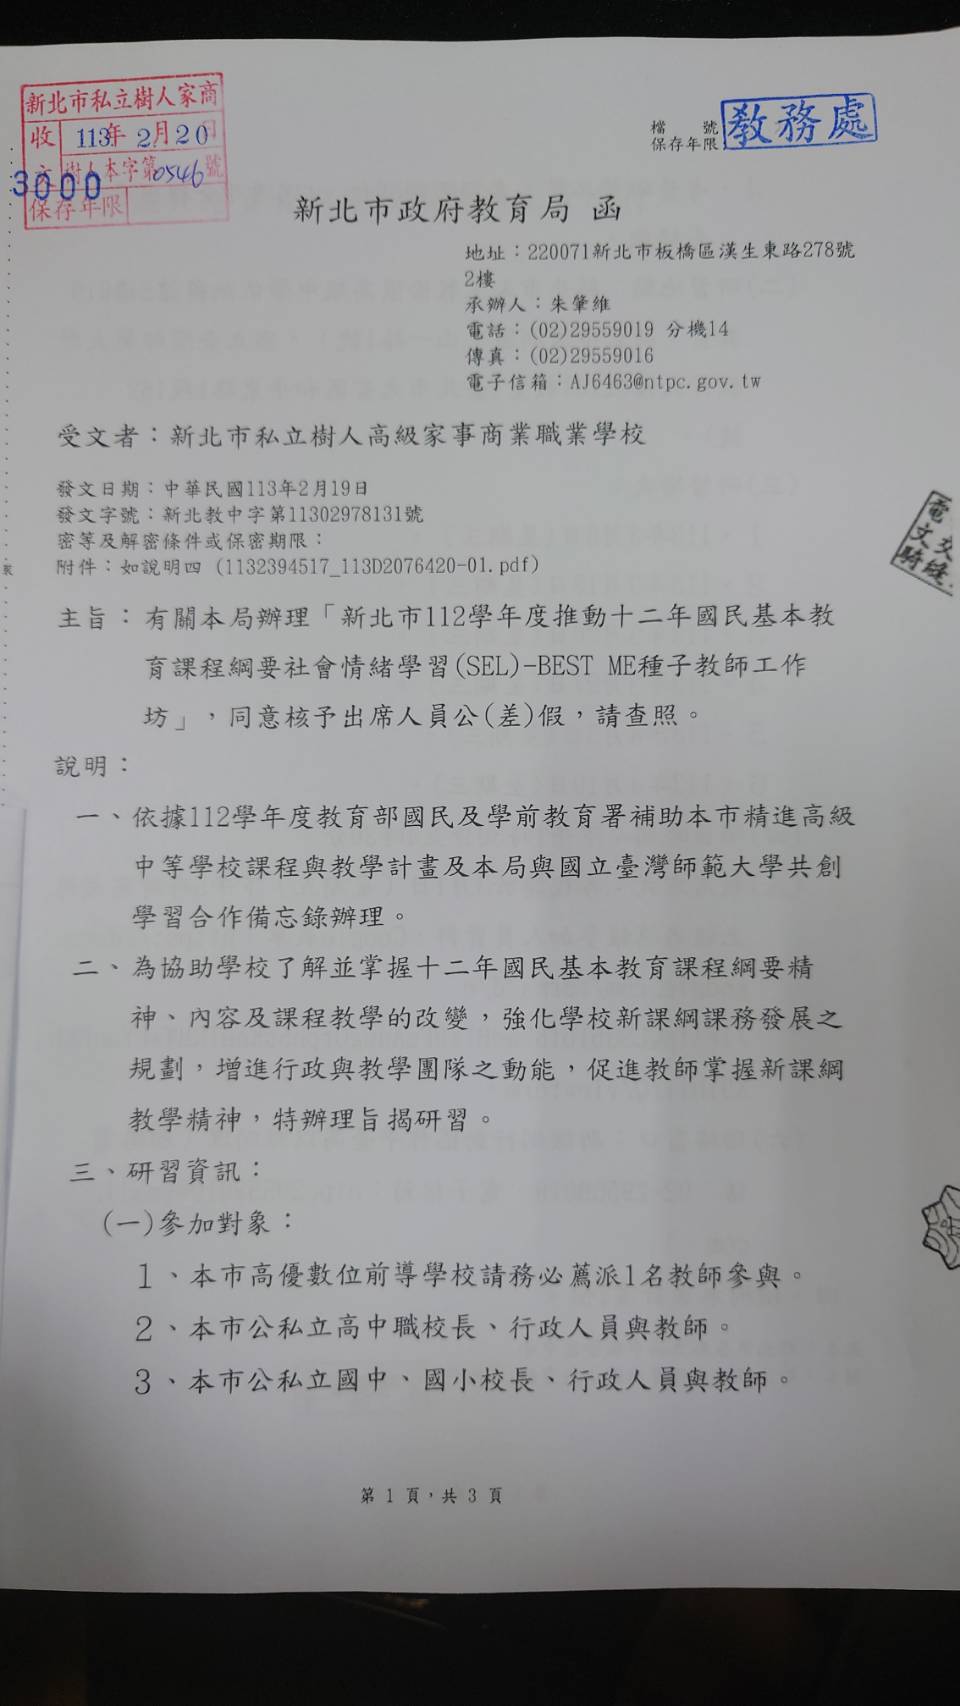 新北市私立樹人家商
收 113年2月20日
文 樹人本字第0546號
3000
保存年限
檔　　號
保存年限
教務處
新北市政府教育局 函
地址：220071新北市板橋區漢生東路278號
2樓
承辦人：朱肇維
電話：(02)29559019 分機14
傳真：(02)29559016
電子信箱：AJ6463@ntpc.gov.tw
受文者：新北市私立樹人高級家事商業職業學校
發文日期：中華民國113年2月19日
發文字號：新北教中字第11302978131號
密等及解密條件或保密期限：
附件：如說明四 (1132394517_113D2076420-01.pdf)
電子交文
騎縫
主旨：有關本局辦理「新北市112學年度推動十二年國民基本教
育課程綱要社會情緒學習(SEL)-BEST ME種子教師工作
坊」，同意核予出席人員公(差)假，請查照。
說明：
一、依據112學年度教育部國民及學前教育署補助本市精進高級
中等學校課程與教學計畫及本局與國立臺灣師範大學共創
學習合作備忘錄辦理。
二、為協助學校了解並掌握十二年國民基本教育課程綱要精
神、內容及課程教學的改變，強化學校新課綱課務發展之
規劃，增進行政與教學團隊之動能，促進教師掌握新課綱
教學精神，特辦理旨揭研習。
三、研習資訊：
(一)參加對象：
1、本市高優數位前導學校請務必薦派1名教師參與。
2、本市公私立高中職校長、行政人員與教師。
3、本市公私立國中、國小校長、行政人員與教師。
第 1 頁，共 3 頁